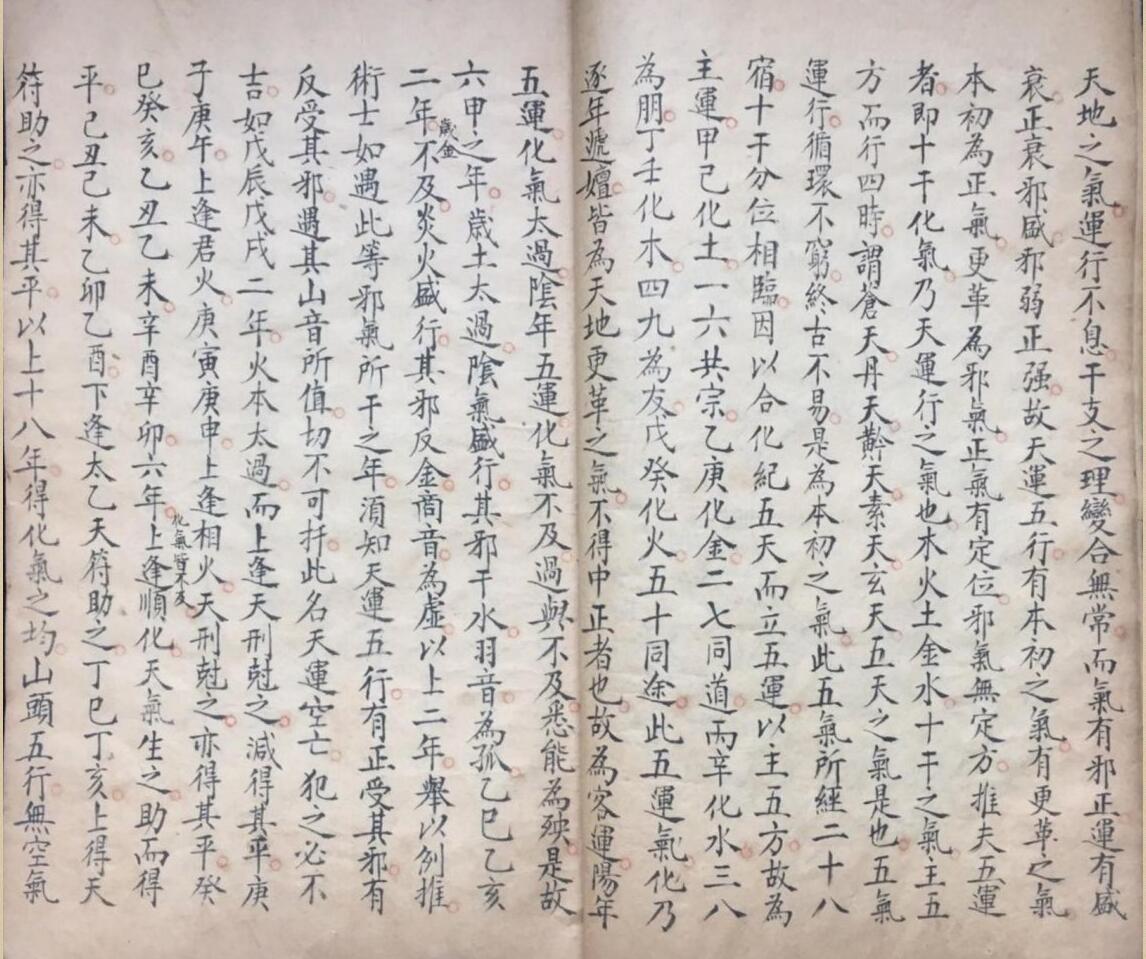 天地之氣運行不息干支之理變合無常而氣有邪正運有盛
衰正衰邪盛邪弱正强故天運五行有本初之氣有更革之氣
本初為正氣更革為邪氣正氣有定位邪氣無定方推夫五運
者即十干化氣乃天運行之氣也木火土金水十干之氣主五
方而行四時謂蒼天丹天黅天素天玄天五天之氣是也五氣
運行循環不窮終古不易是為本初之氣此五氣所經二十八
宿十干分位相臨因以合化紀五天而立五運以主五方故為
主運甲己化土一六共宗乙庚化金二七同道丙辛化水三八
為朋丁壬化木四九為友戊癸化火五十同途此五運氣化乃
逐年遞嬗皆為天地更革之氣不得中正者也故為客運陽年
五運化氣太過陰年五運化氣不及過與不及悉能為殃是故
六甲之年歲土太過陰氣盛行其邪干水羽音為孤乙巳乙亥
二年歲金不及炎火盛行其邪反金商音為虛以上二年舉以例推
術士如遇此等邪氣所干之年須知天運五行有正受其邪有
反受其邪遇其山音所值切不可扦此名天運空亡犯之必不
吉如戊辰戊戌二年火本太過而上逢天刑尅之減得其平庚
子庚午上逢君火庚寅庚申上逢相火天刑尅之亦得其平癸
巳癸亥乙丑乙未辛酉辛卯六年化氣皆不及上逢順化天氣生之助而得
平己丑己未乙卯乙酉下逢太乙天符助之丁巳丁亥上得天
符助之亦得其平以上十八年得化氣之均山頭五行無空氣